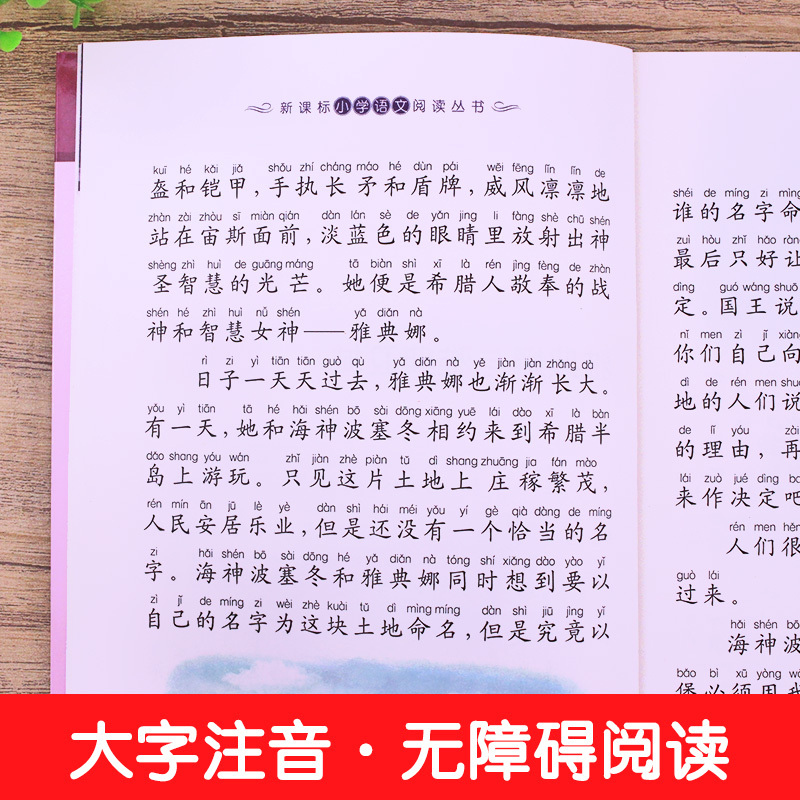 新课标小学语文阅读丛书
kuī hé kǎi jiǎ shǒu zhí cháng máo hé dùn pái wēi fēng lǐn lǐn de
盔和铠甲，手执长矛和盾牌，威风凛凛地
zhàn zài zhòu sī miàn qián dàn lán sè de yǎn jing li fàng shè chū shén
站在宙斯面前，淡蓝色的眼睛里放射出神
shèng zhì huì de guāng máng tā biàn shì xī là rén jìng fèng de zhàn
圣智慧的光芒。她便是希腊人敬奉的战
shén hé zhì huì nǚ shén yǎ diǎn nà
神和智慧女神——雅典娜。
rì zi yì tiān tiān guò qù yǎ diǎn nà yě jiàn jiàn zhǎng dà
日子一天天过去，雅典娜也渐渐长大。
yǒu yì tiān tā hé hǎi shén bō sài dōng xiāng yuē lái dào xī là bàn
有一天，她和海神波塞冬相约来到希腊半
dǎo shang yóu wán zhǐ jiàn zhè piàn tǔ dì shang zhuāng jia fán mào
岛上游玩。只见这片土地上庄稼繁茂，
rén mín ān jū lè yè dàn shì hái méi yǒu yí gè qià dàng de míng
人民安居乐业，但是还没有一个恰当的名
zi hǎi shén bō sài dōng hé yǎ diǎn nà tóng shí xiǎng dào yào yǐ
字。海神波塞冬和雅典娜同时想到要以
zì jǐ de míng zi wèi zhè kuài tǔ dì mìng míng dàn shì jiū jìng yǐ
自己的名字为这块土地命名，但是究竟以
shéi de míng zi mìng
谁的名字命
zuì hòu zhǐ hǎo ràng
最后只好让
dìng guó wáng shuō
定。国王说
nǐ men zì jǐ xiàng
你们自己向
dì de rén men shuō
地的人们说
de lǐ yóu zài
的理由，再
lái zuò jué dìng ba
来作决定吧
rén men hěn
人们很
guò lái
过来。
hǎi shén bō
海神波
bǎo bì xū yòng wǒ
堡必须用我
大字注音·无障碍阅读